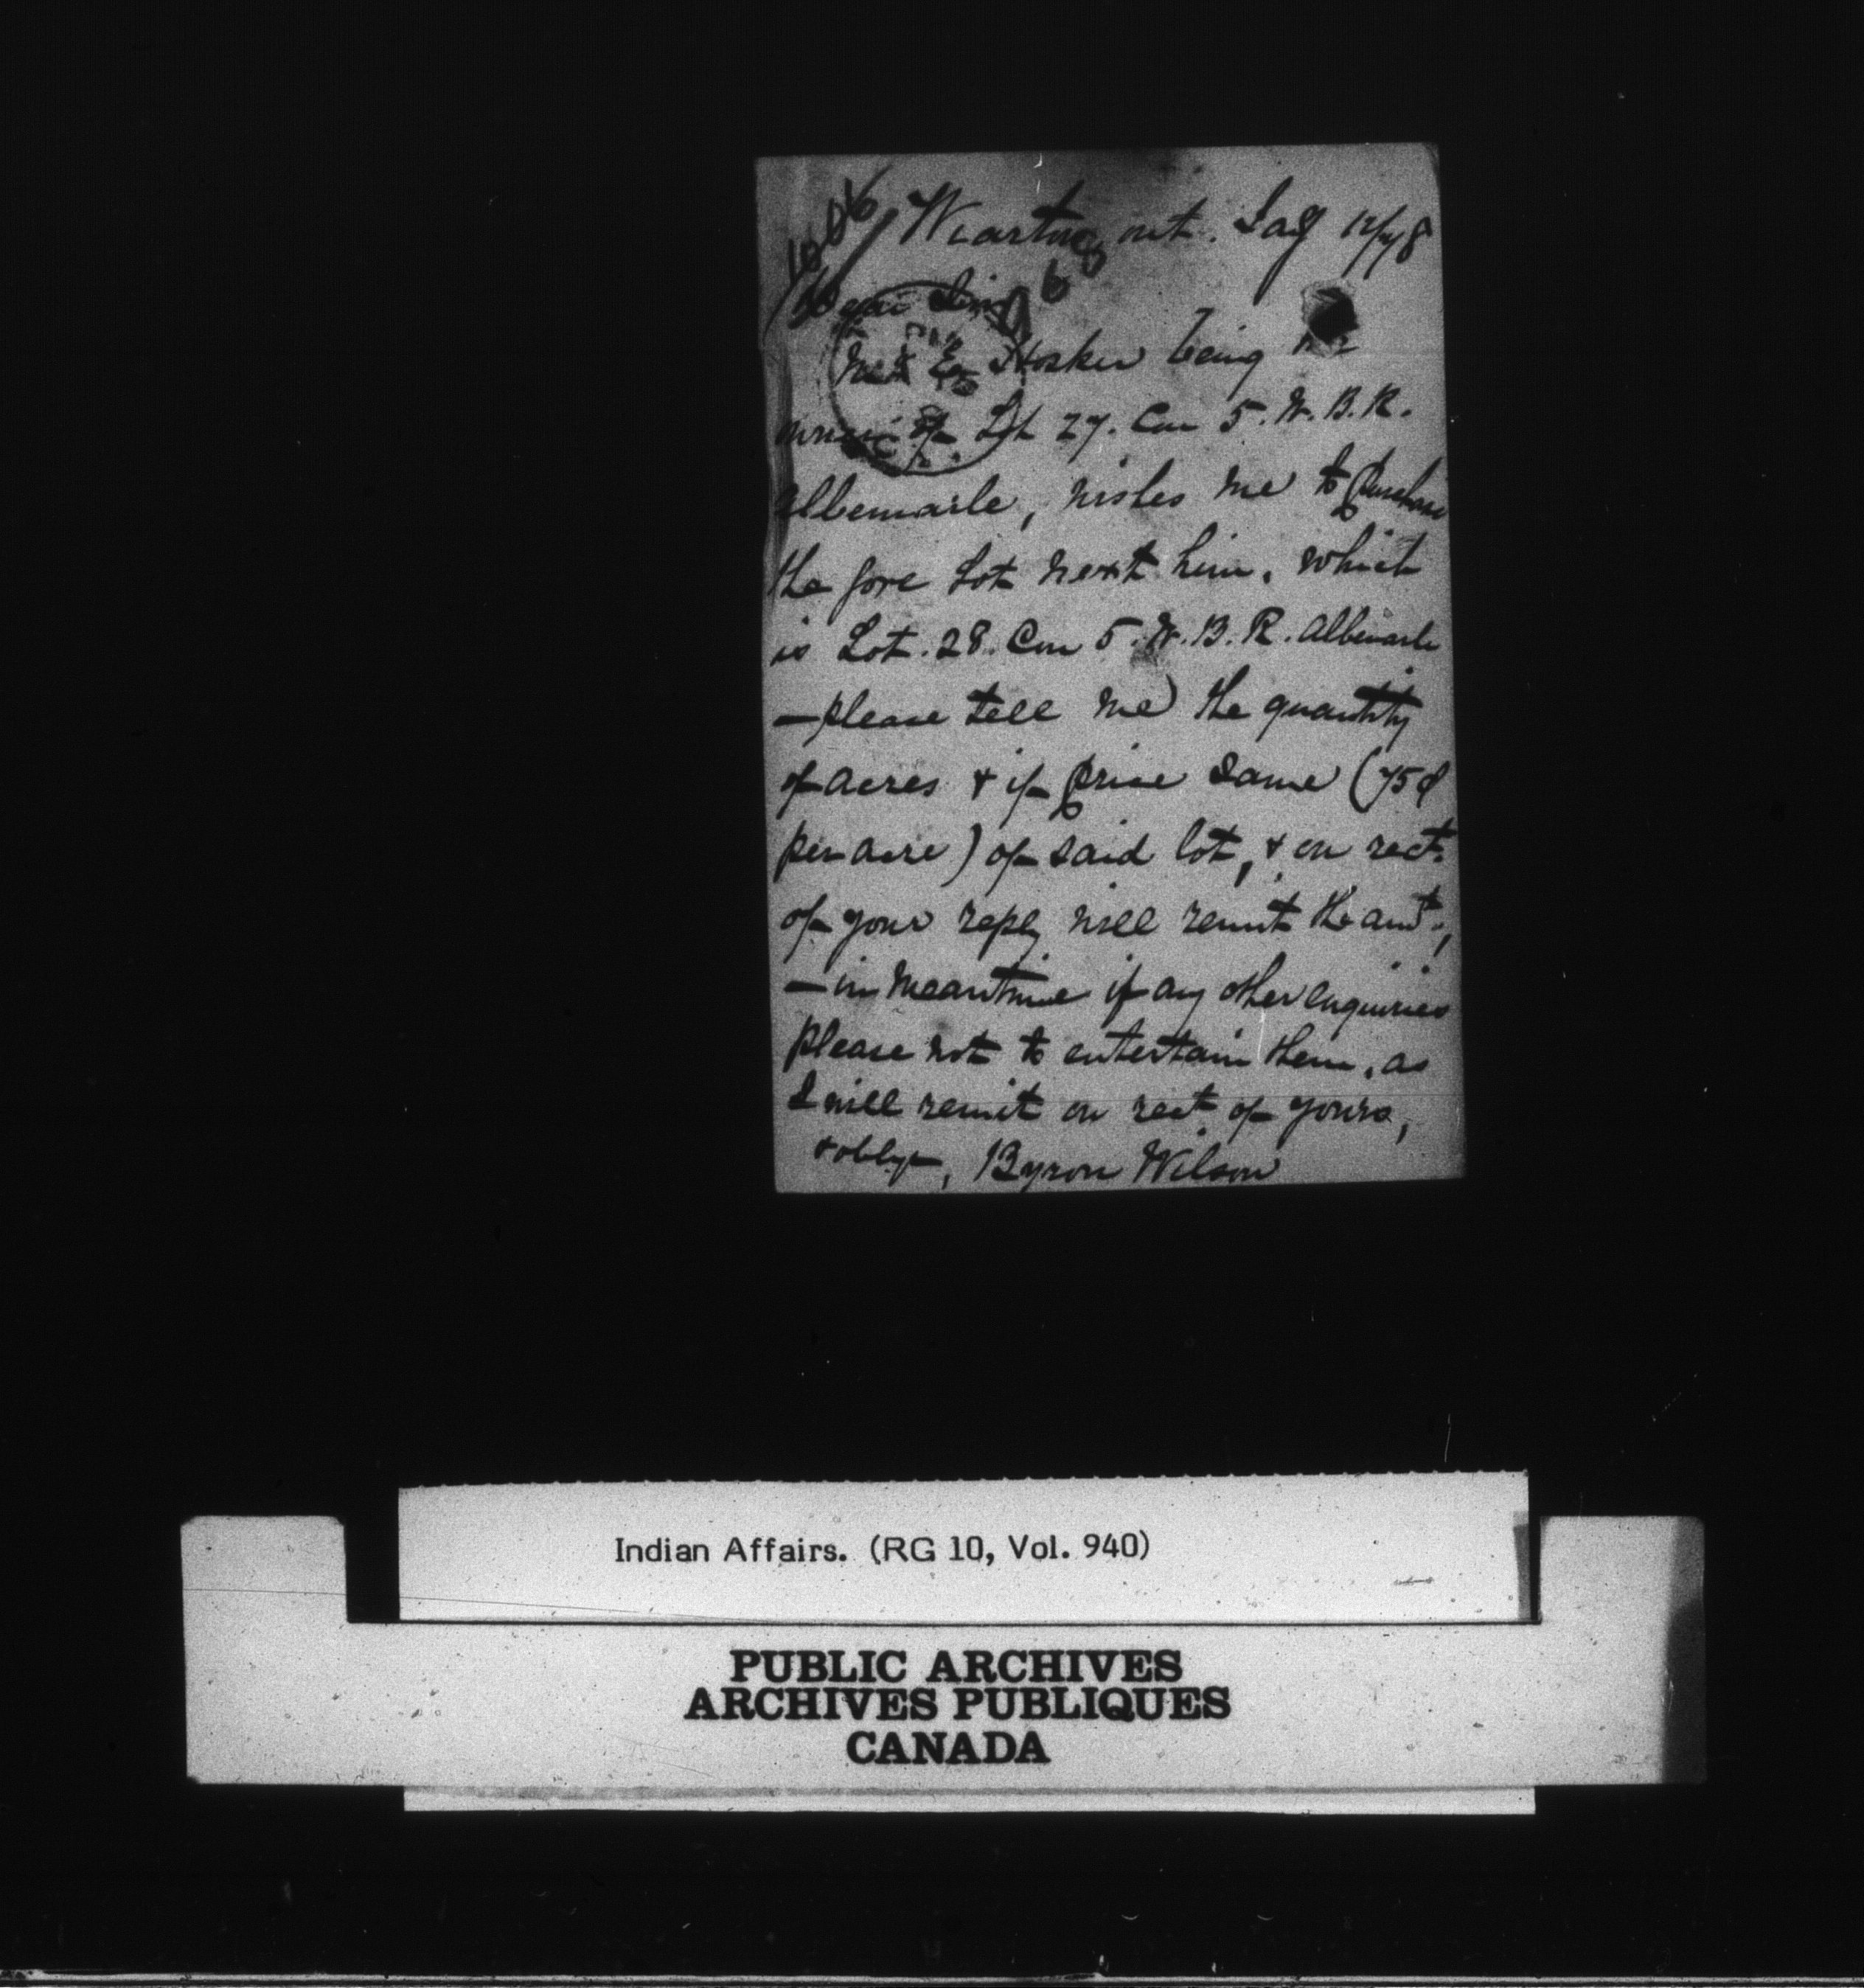 Wiarton, ont.
Dear Sir
Hosker being the
owner of Lot 27. Con 5. W. B. R.
Albemarle, wishes me to purchase
the gore Lot next him, which
is Lot. 28. Con 5. W. B. R. Albemarle
— please tell me the quantity
of acres & if price same (75¢
per acre) of said lot, & on rect.
of your reply will remit the amt.,
— in meantime if any other enquiries
please not to entertain them, as
I will remit on rect. of yours,
& oblige, Byron Wilson
Indian Affairs. (RG 10, Vol. 940)
PUBLIC ARCHIVES
ARCHIVES PUBLIQUES
CANADA